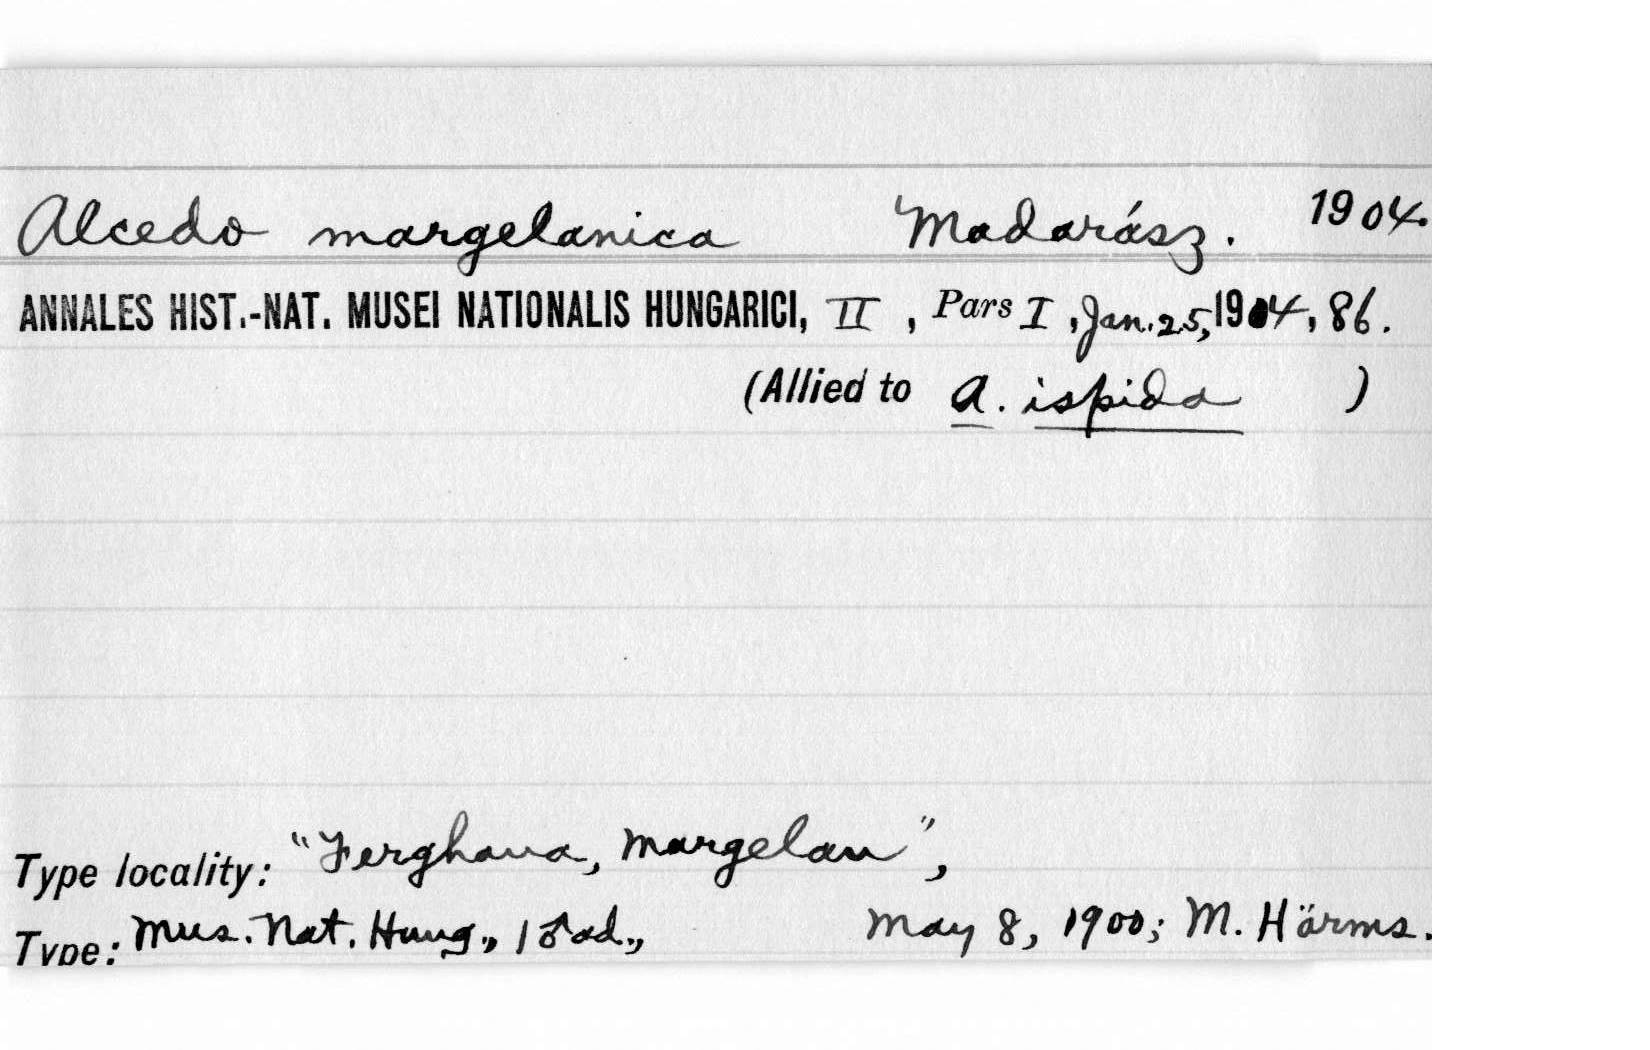 Alcedo margelanica Madarász. 1904.
ANNALES HIST.-NAT. MUSEI NATIONALIS HUNGARICI, II, Pars I, Jan. 25, 1904, 86.
(Allied to A. ispida )
Type locality: "Ferghana, Margelan",
Type: Mus. Nat. Hung., 1 ♂ ad., May 8, 1900; M. Härms.